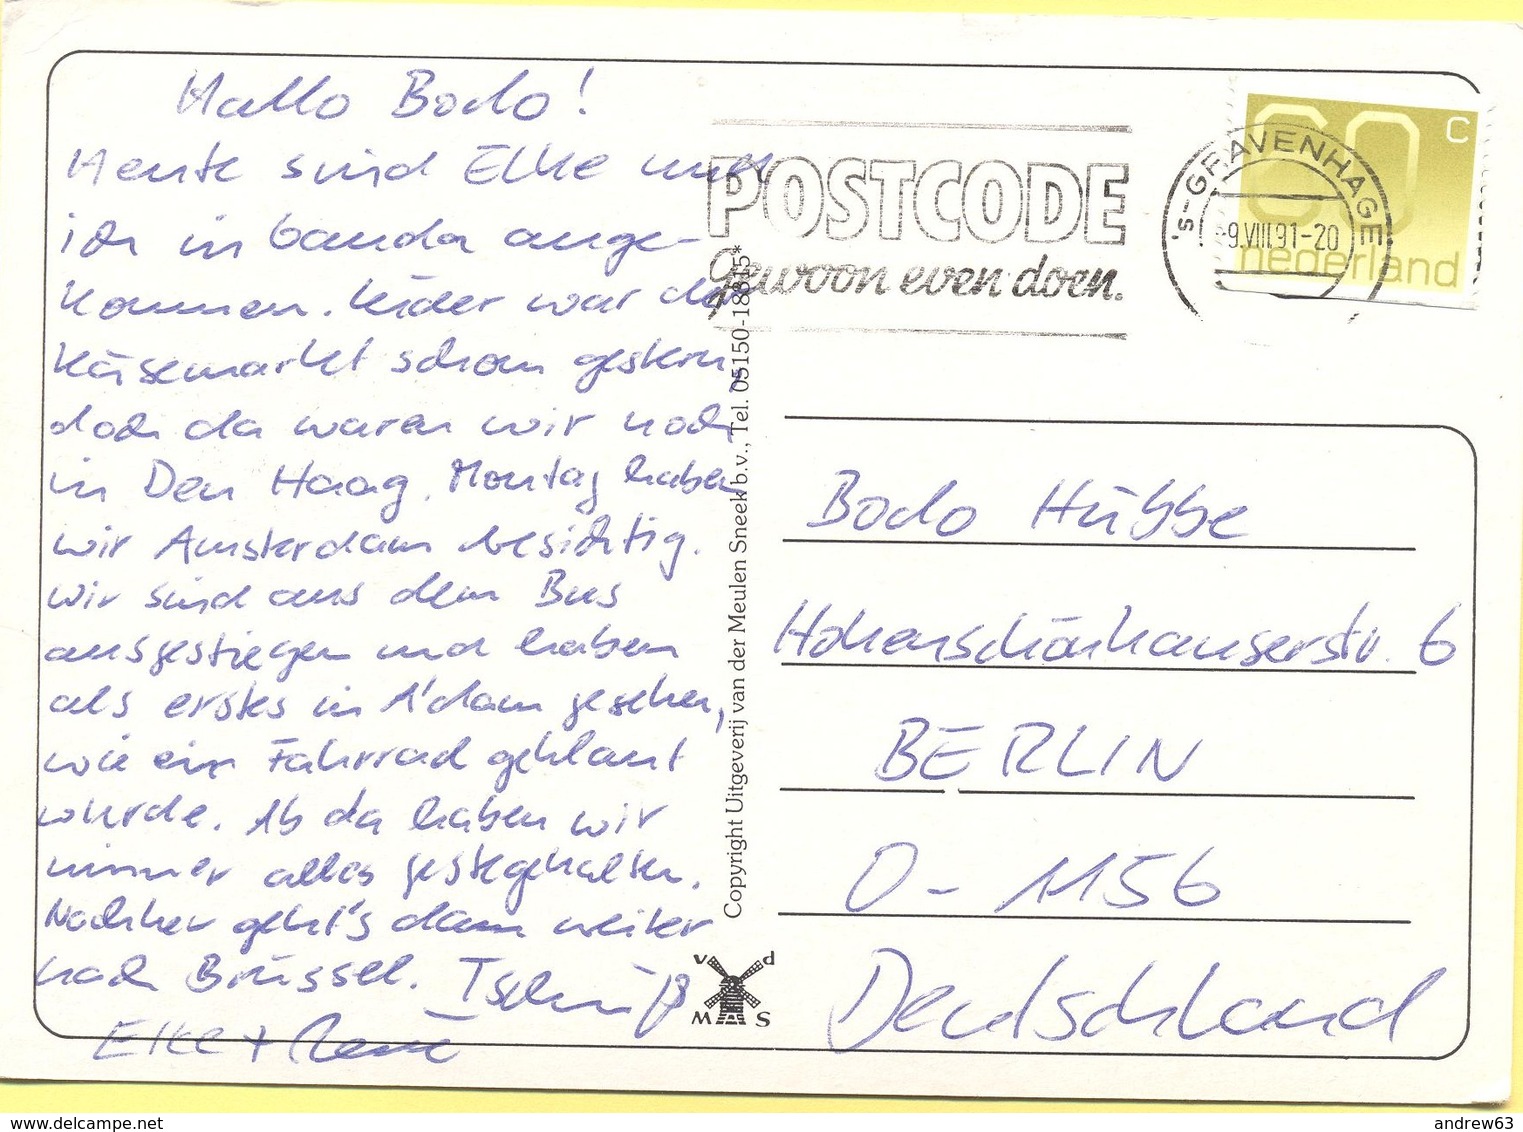 Hallo Bodo!
Heute sind Elke und
ich in Gouda ange-
kommen. Leider war der
Käsemarkt schon gestern,
doch da waren wir noch
in Den Haag. Montag haben
wir Amsterdam besichtig.
Wir sind aus dem Bus
ausgestiegen und haben
als erstes in A'dam gesehen,
wie ein Fahrrad geklaut
wurde. Ab da haben wir
immer alles festegehalten.
Nachher geht's dann weiter
nach Brüssel. Tschüß
Elke + René
POSTCODE
gewoon even doen.
's-GRAVENHAGE
-9.VIII.91-20
60 C
nederland
Copyright Uitgeverij van der Meulen Sneek b.v., Tel. 05150-18815*
v d
M S
Bodo Hübbe
Hohenschönhauserstr. 6
BERLIN
O-1156
Deutschland
www.delcampe.net
andrew63